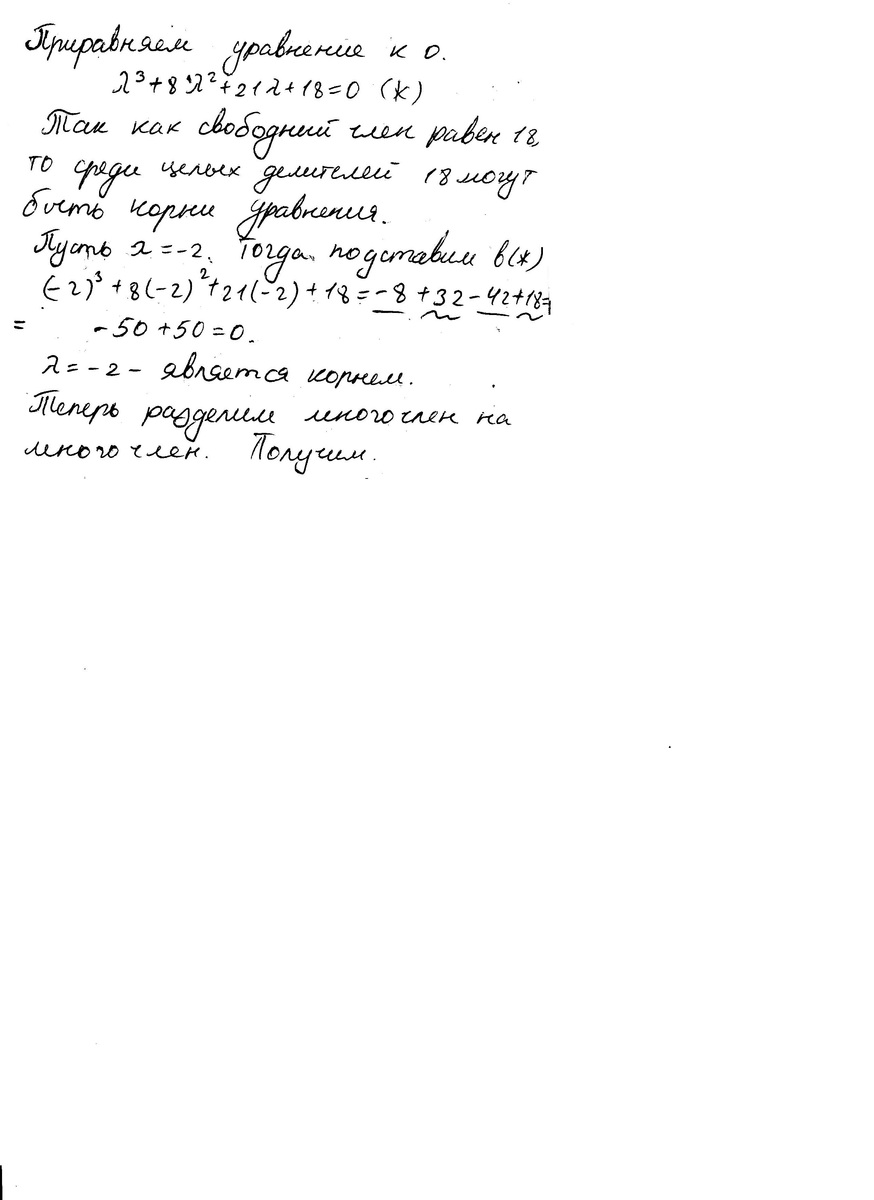 Приравняем уравнение к 0.
λ³+8λ²+21λ+18=0 (*)
Так как свободний член равен 18,
то среди целых делителей 18 могут
быть корни уравнения.
Пусть λ=-2. Тогда подставим в(*)
(-2)³+8(-2)²+21(-2)+18=-8+32-42+18=
= -50+50=0.
λ=-2- является корнем.
Теперь разделим многочлен на
многочлен. Получим.